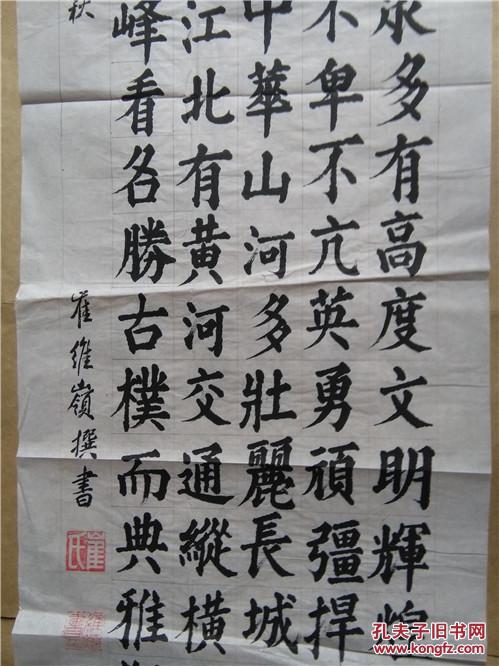 多有高度文明輝煌
不卑不亢英勇頑彊捍
中華山河多壯麗長城
江北有黃河交通縱橫
峰看各勝古樸而典雅
秋
崔維嶺撰書
崔氏
孔夫子旧书网
www.kongfz.com